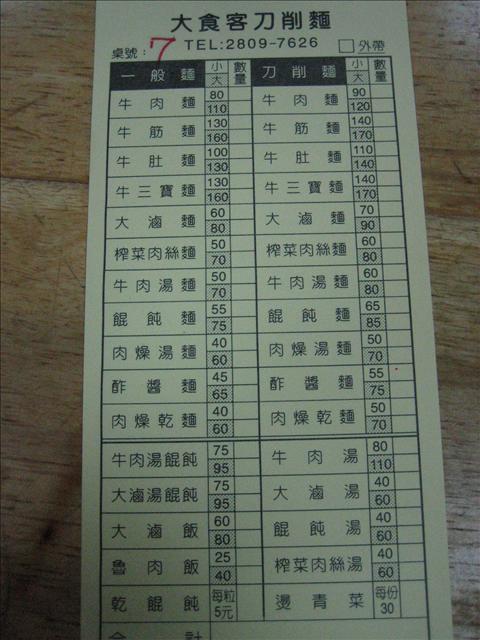 大食客刀削麵
桌號：7 TEL:2809-7626 □外帶
一般麵 小 大 數量 刀削麵 小 大 數量
牛肉麵 80 110 牛肉麵 90 120
牛筋麵 130 160 牛筋麵 140 170
牛肚麵 100 130 牛肚麵 110 140
牛三寶麵 130 160 牛三寶麵 140 170
大滷麵 60 80 大滷麵 70 90
榨菜肉絲麵 50 70 榨菜肉絲麵 60 80
牛肉湯麵 50 70 牛肉湯麵 60 80
餛飩麵 55 75 餛飩麵 65 85
肉燥湯麵 40 60 肉燥湯麵 50 70
酢醬麵 45 65 酢醬麵 55 75
肉燥乾麵 40 60 肉燥乾麵 50 70
牛肉湯餛飩 75 95 牛肉湯 80 110
大滷湯餛飩 75 95 大滷湯 40 60
大滷飯 60 80 餛飩湯 40 60
魯肉飯 25 40 榨菜肉絲湯 40 60
乾餛飩 每粒5元 燙青菜 每份30
合計